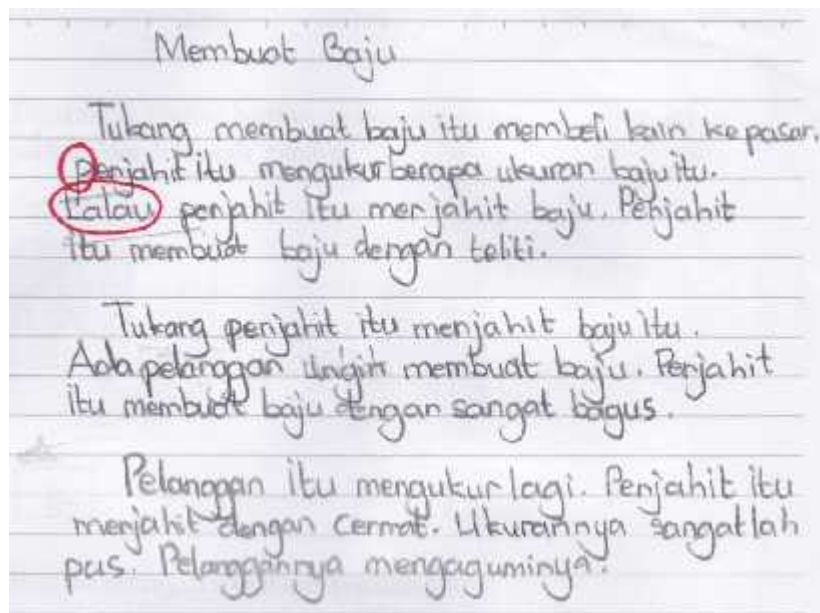 Membuat Baju
Tukang membuat baju itu membeli kain ke pasar.
Penjahit itu mengukur berapa ukuran baju itu.
Lalau penjahit itu menjahit baju. Penjahit
itu membuat baju dengan teliti.
Tukang penjahit itu menjahit baju itu.
Ada pelanggan ingin membuat baju. Penjahit
itu membuat baju dengan sangat bagus.
Pelanggan itu mengukur lagi. Penjahit itu
menjahit dengan cermat. Ukurannya sangatlah
pas. Pelanggannya mengaguminya.